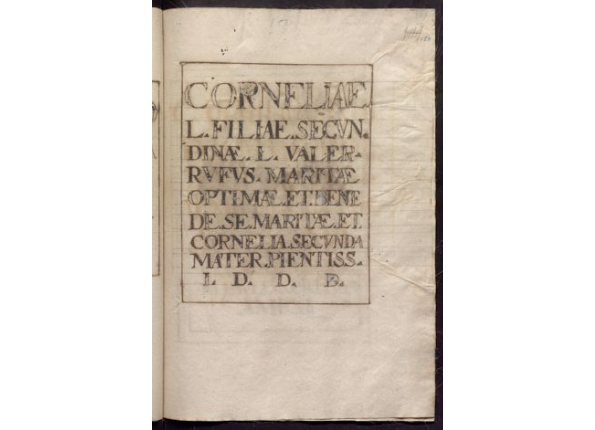 CORNELIAE
L. FILIAE. SECVN.
DINÆ. L. VALER.
RVFVS. MARITÆ
OPTIMÆ. ET. BENE
DE. SE. MARITÆ. ET.
CORNELIA. SECVNDA
MATER. PIENTISS.
L D. D. D.